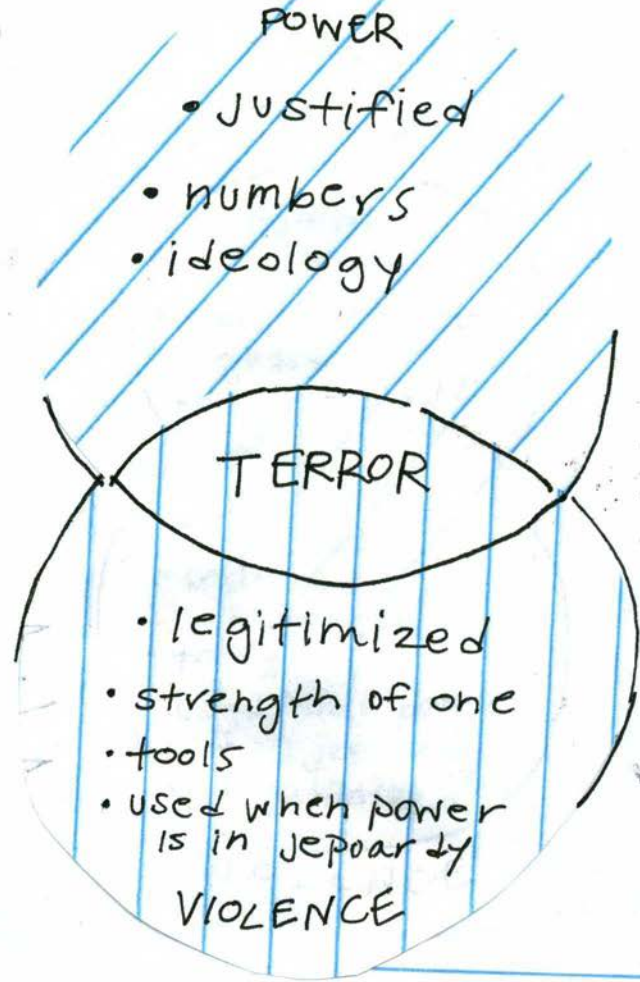 POWER
• justified
• numbers
• ideology
TERROR
• legitimized
• strength of one
• tools
• used when power
is in jepoardy
VIOLENCE